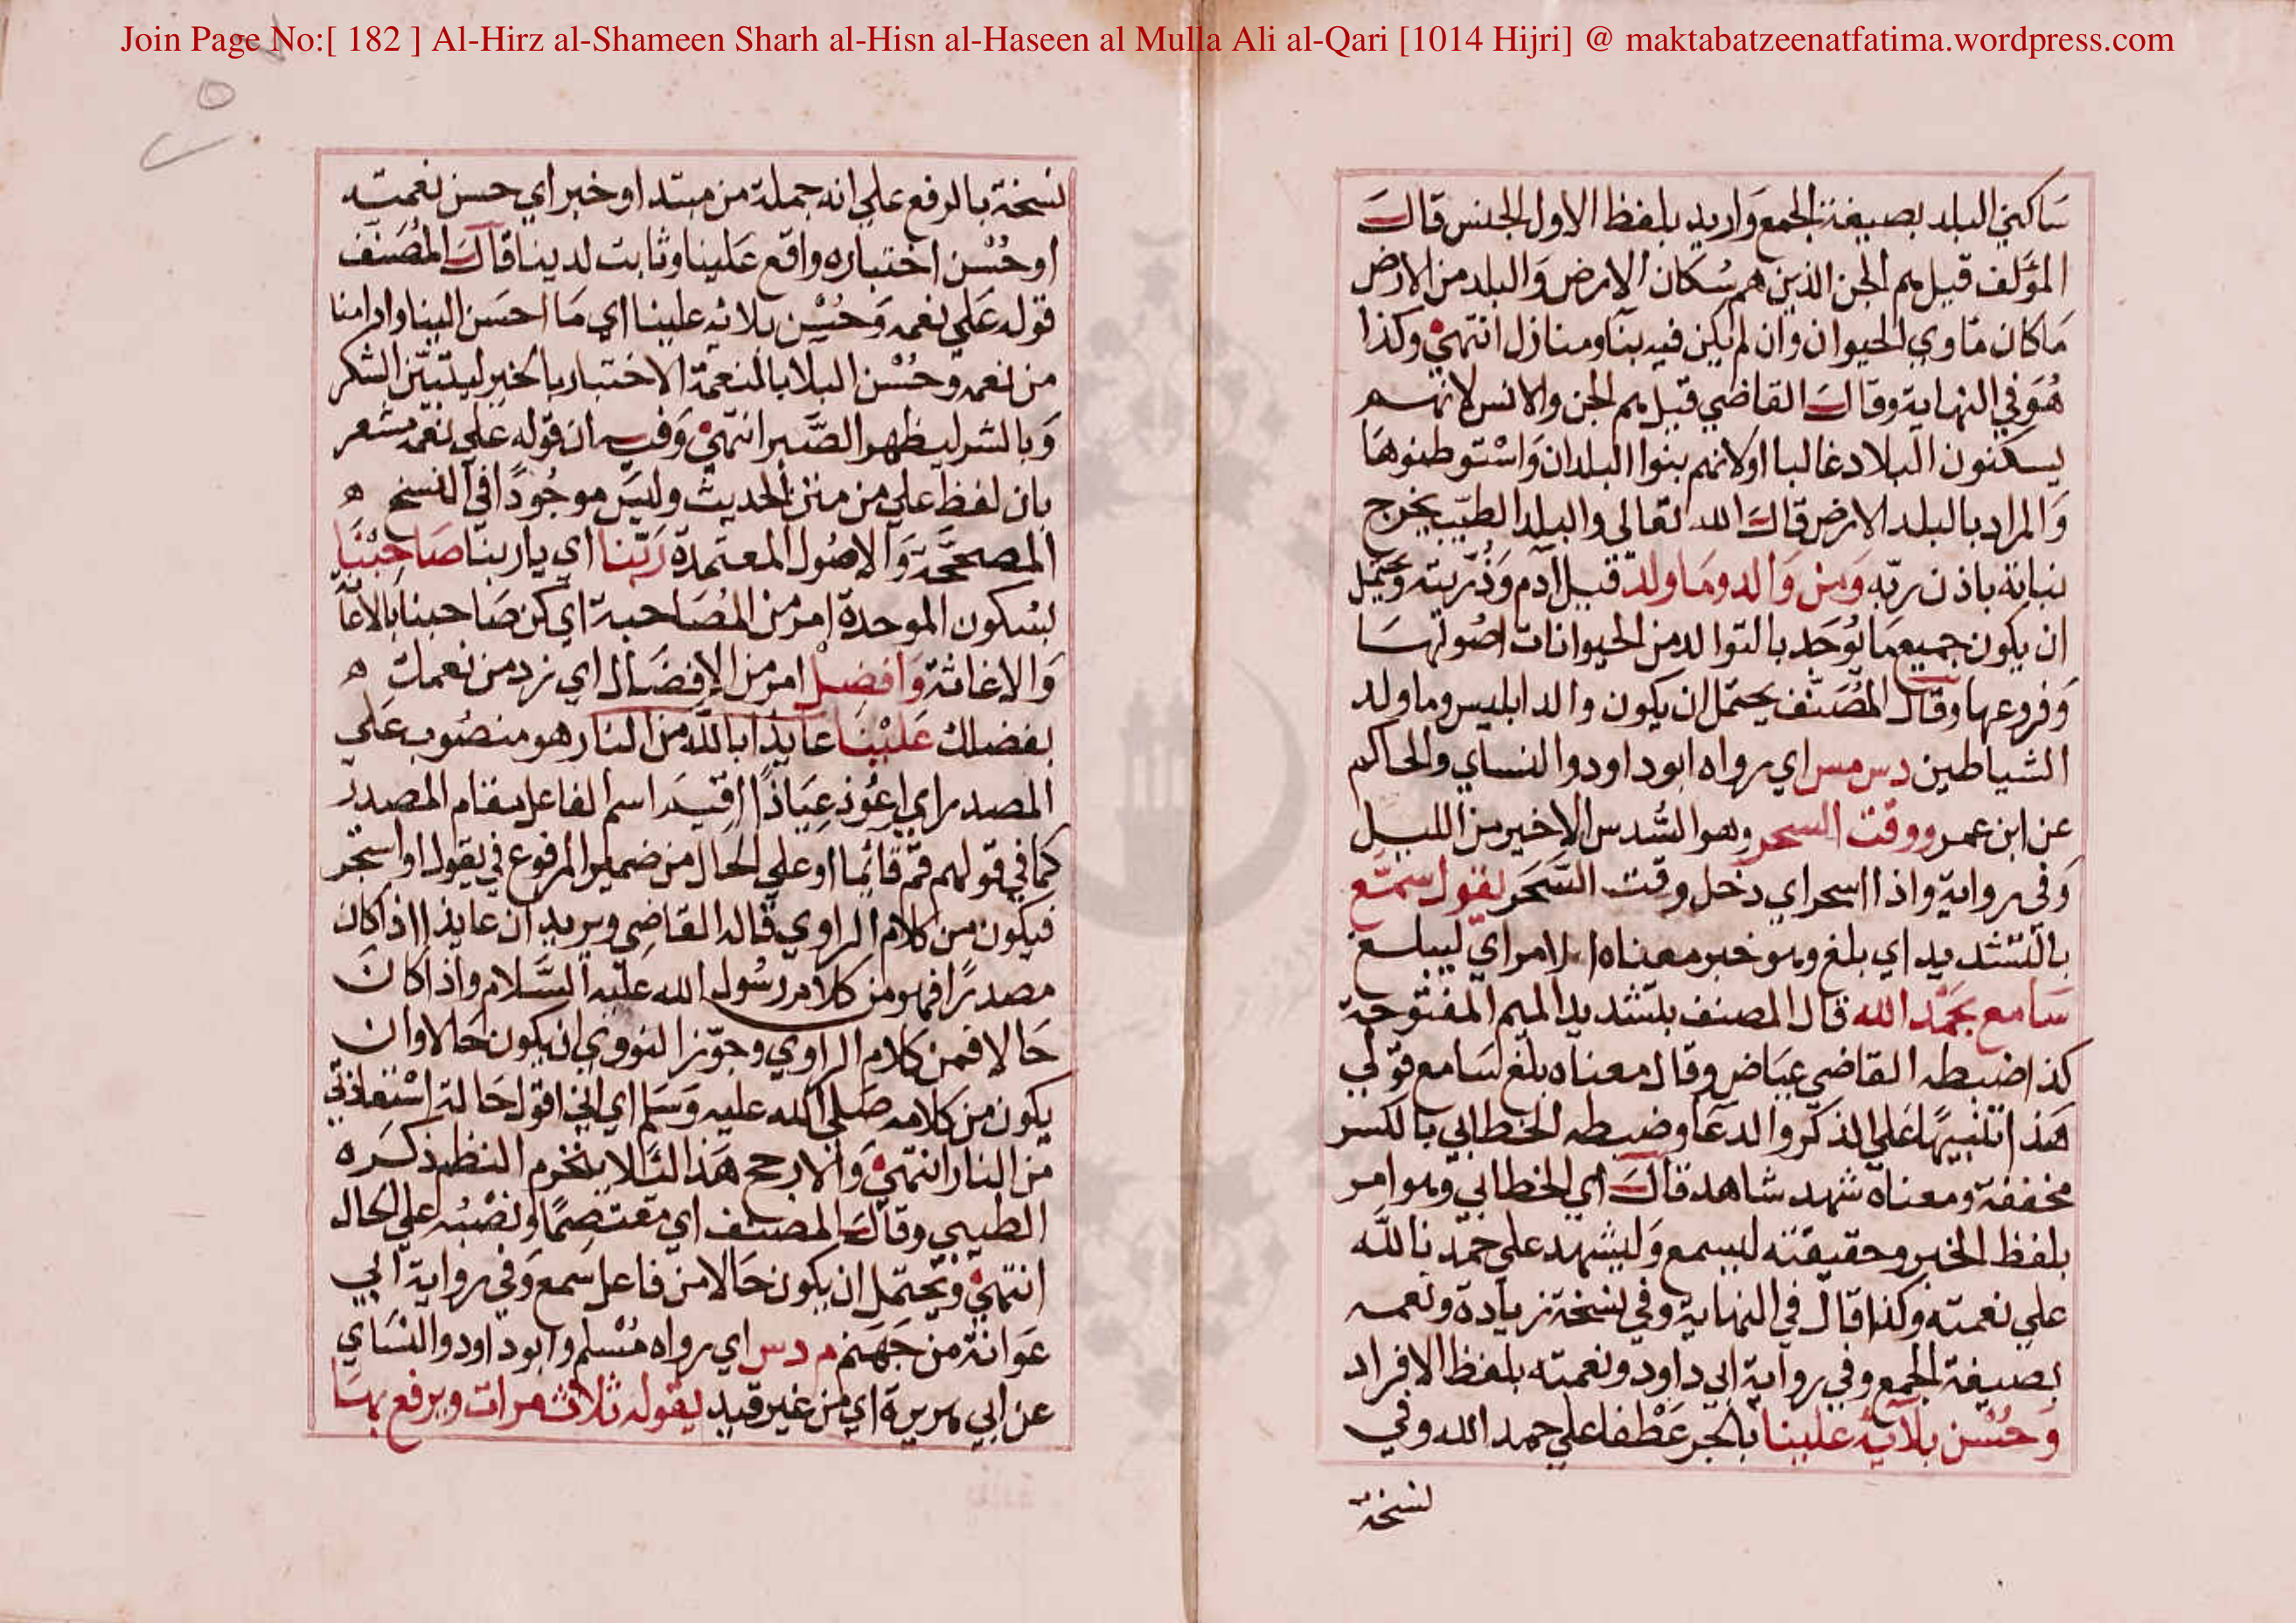 Join Page No:[ 182 ] Al-Hirz al-Shameen Sharh al-Hisn al-Haseen al Mulla Ali al-Qari [1014 Hijri] @ maktabatzeenatfatima.wordpress.com
سَاكني البلد بصيغة الجمع وَاريد بلفظ الاول الجنس قالَ
المؤلف قيل هم الجن الذين هم سُكان الارض وَالبلد من الارض
مَا كان مَاوي الحيوان وان لم يكن فيه بنا ومنازل انتهيٰ وكذا
هُوَ في النهاية وقالَ القاضي قيل هم الجن والانس لانهم
يسكنون البلاد غالبا اولانهم بنوا البلدان وَاسْتوطنوهَا
وَالمراد بالبلد الارض قالَ الله تعالي والبلد الطيّب يخرج
نباته باذن ربّه وَمن وَالد ومَا ولد قيل آدم وَذُرّيته وَيحتمل
ان يكون جميع مَا يُوجَد بالتوالد من الحيوانات اصُولهَا
وَفروعها وقال المُصَنّف يحتمل ان يكون والد ابليس وما ولد
الشياطين دس مس اي رواه ابو داود والنساي والحاكم
عن ابن عمر ووقت السحر وهو السُّدس الاخير من الليل
وَفي رواية واذا اسحر اي دخل وقت السَّحَر يقول سمّع
بالتشديد اي بلغ وهو خبر معناه الامر اي ليبلغ
سَامع بحَمْد الله قال المصنف بتشديد الميم المفتوحة
كذا ضبطه القاضي عيَاض وقال معناه بلغ سَامع قولي
هَذا تنبيهًا عَلي الذكر والدعَا وضبطه الخطابي بالكسر
مخففة ومعناه شهد شاهد قالَ اي الخطابي وهو امر
بلفظ الخبر وحقيقته ليسمع وَليشهد علي حمدنا للّه
علي نعمته وكذا قال في النهاية وفي نسخة زيادة ونعمه
بصيغة الجمع وفي رواية ابي داود ونعمته بلفظ الافراد
وَحُسْن بلآئه علينا بالجر عَطْفا علي حمد الله وفي
نسخة
نسخة بالرفع علي انه جملة من مبتدا وخبر اي حسن نعمته
او حُسْن اختباره واقع عَلينا وثابت لدينا قالَ المُصَنّف
قوله عَلي نعمه وَحُسْن بلائه علينا اي مَا احسَن الينا وارامنا
من نعمه وحُسْن البلا بالنعمة الاختبار بالخير ليتبيّن الشكر
وَبالشر ليظهر الصَّبر انتهيٰ وَفيه ان قوله عَلي نعمه مشعر
بان لفظ علي من متن الحديث وليسَ موجُودًا في النسخ ه
المصححّة وَالاصُول المعتمدة رَبّنا اي يا ربنا صَاحِبْنَا
بسُكون الموحدة امر من المُصَاحبة اي كن صَاحبنا بالاعا
وَالاغاثة وَافضِلْ امر من الاِفضَال اي زد من نعمك ه
بفضلك عَليْنَا عَايذا باللّه من النار هو منصُوب عَلي
المصدر اي اعُوذ عِيَاذًا اقيمَ اسم الفاعل مقام المصدر
كما في قولهم قمْ قائِما او علي الحَال من ضمير المرفوع في يقول او استجر
فيكون من كلام الراوي قاله القاضِي ويريد ان عايذا اذا كان
مصدرًا فهو من كلام رسُول الله عليْه السَّلام واذا كانَ
حَالا فمن كلام الراوي وجوّز النووي ان يكون حَالا وان
يكون من كلامه صَلي الله عليه وَسَلم اي اني اقول حَالة اسْتعاذتي
من النار انتهيٰ وَالارجح هَذا لئلا ينخرم النظم ذكرَه
الطيبي وقالَ المصنف اي معْتصِمًا ونصْبُه علي الحال
انتهيٰ وَيحْتمل ان يكون حَالا من فاعل سَمع وَفي رواية ابي
عَوَانة من جَهَنم م دس اي رواه مُسْلم وابو داود والنسَاي
عن ابي هريرة اي من غير قيد يقوله ثلاث مرات ويرفع بهَا